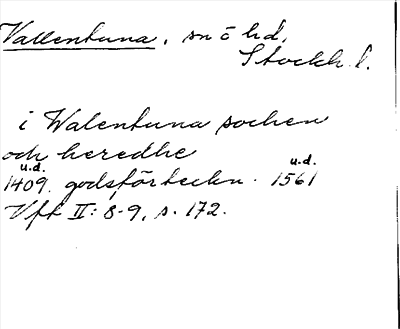 Vallentuna, sn o hd,
Stockh. l.
i Walentuna sochen
och heredhe
u.d. u.d.
1409. godsförteckn. 1561
Vft II: 8-9, s. 172.